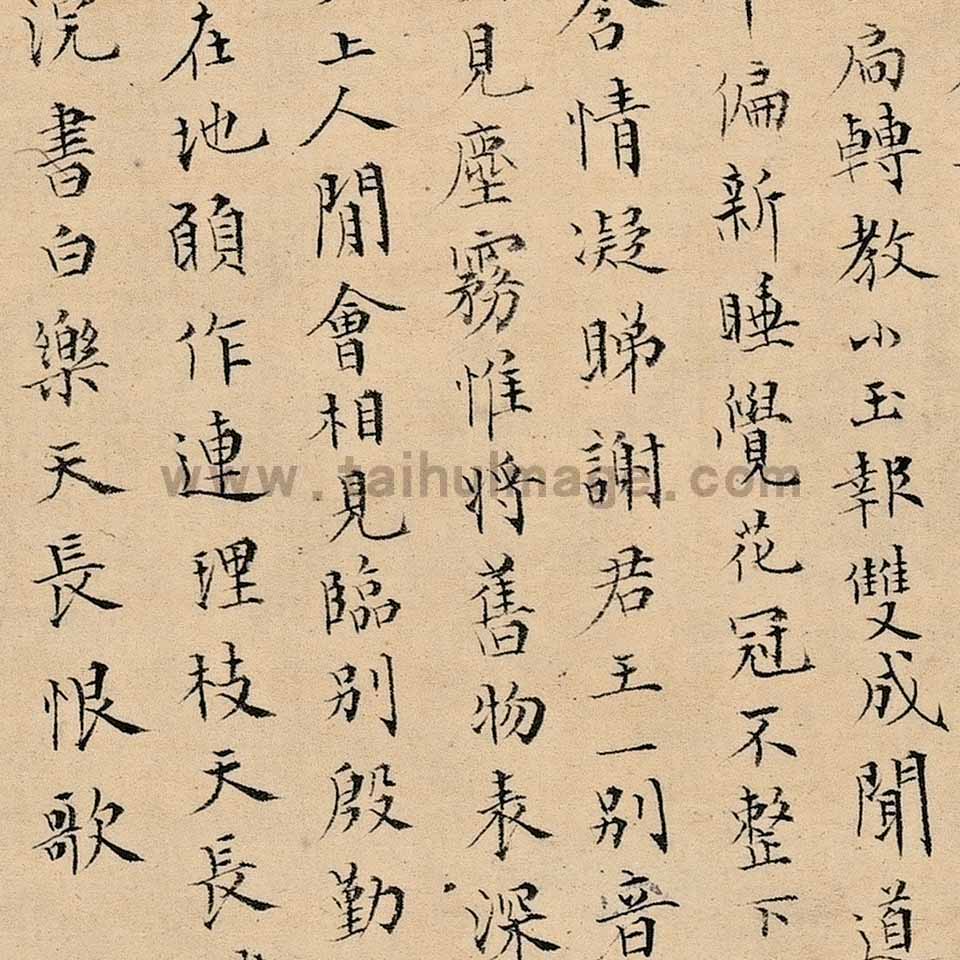 扃轉教小玉報雙成聞道
偏新睡覺花冠不整下
含情凝睇謝君王一別音
見塵霧惟將舊物表深
上人間會相見臨別殷勤
在地願作連理枝天長
書白樂天長恨歌
www.taihuimage.com